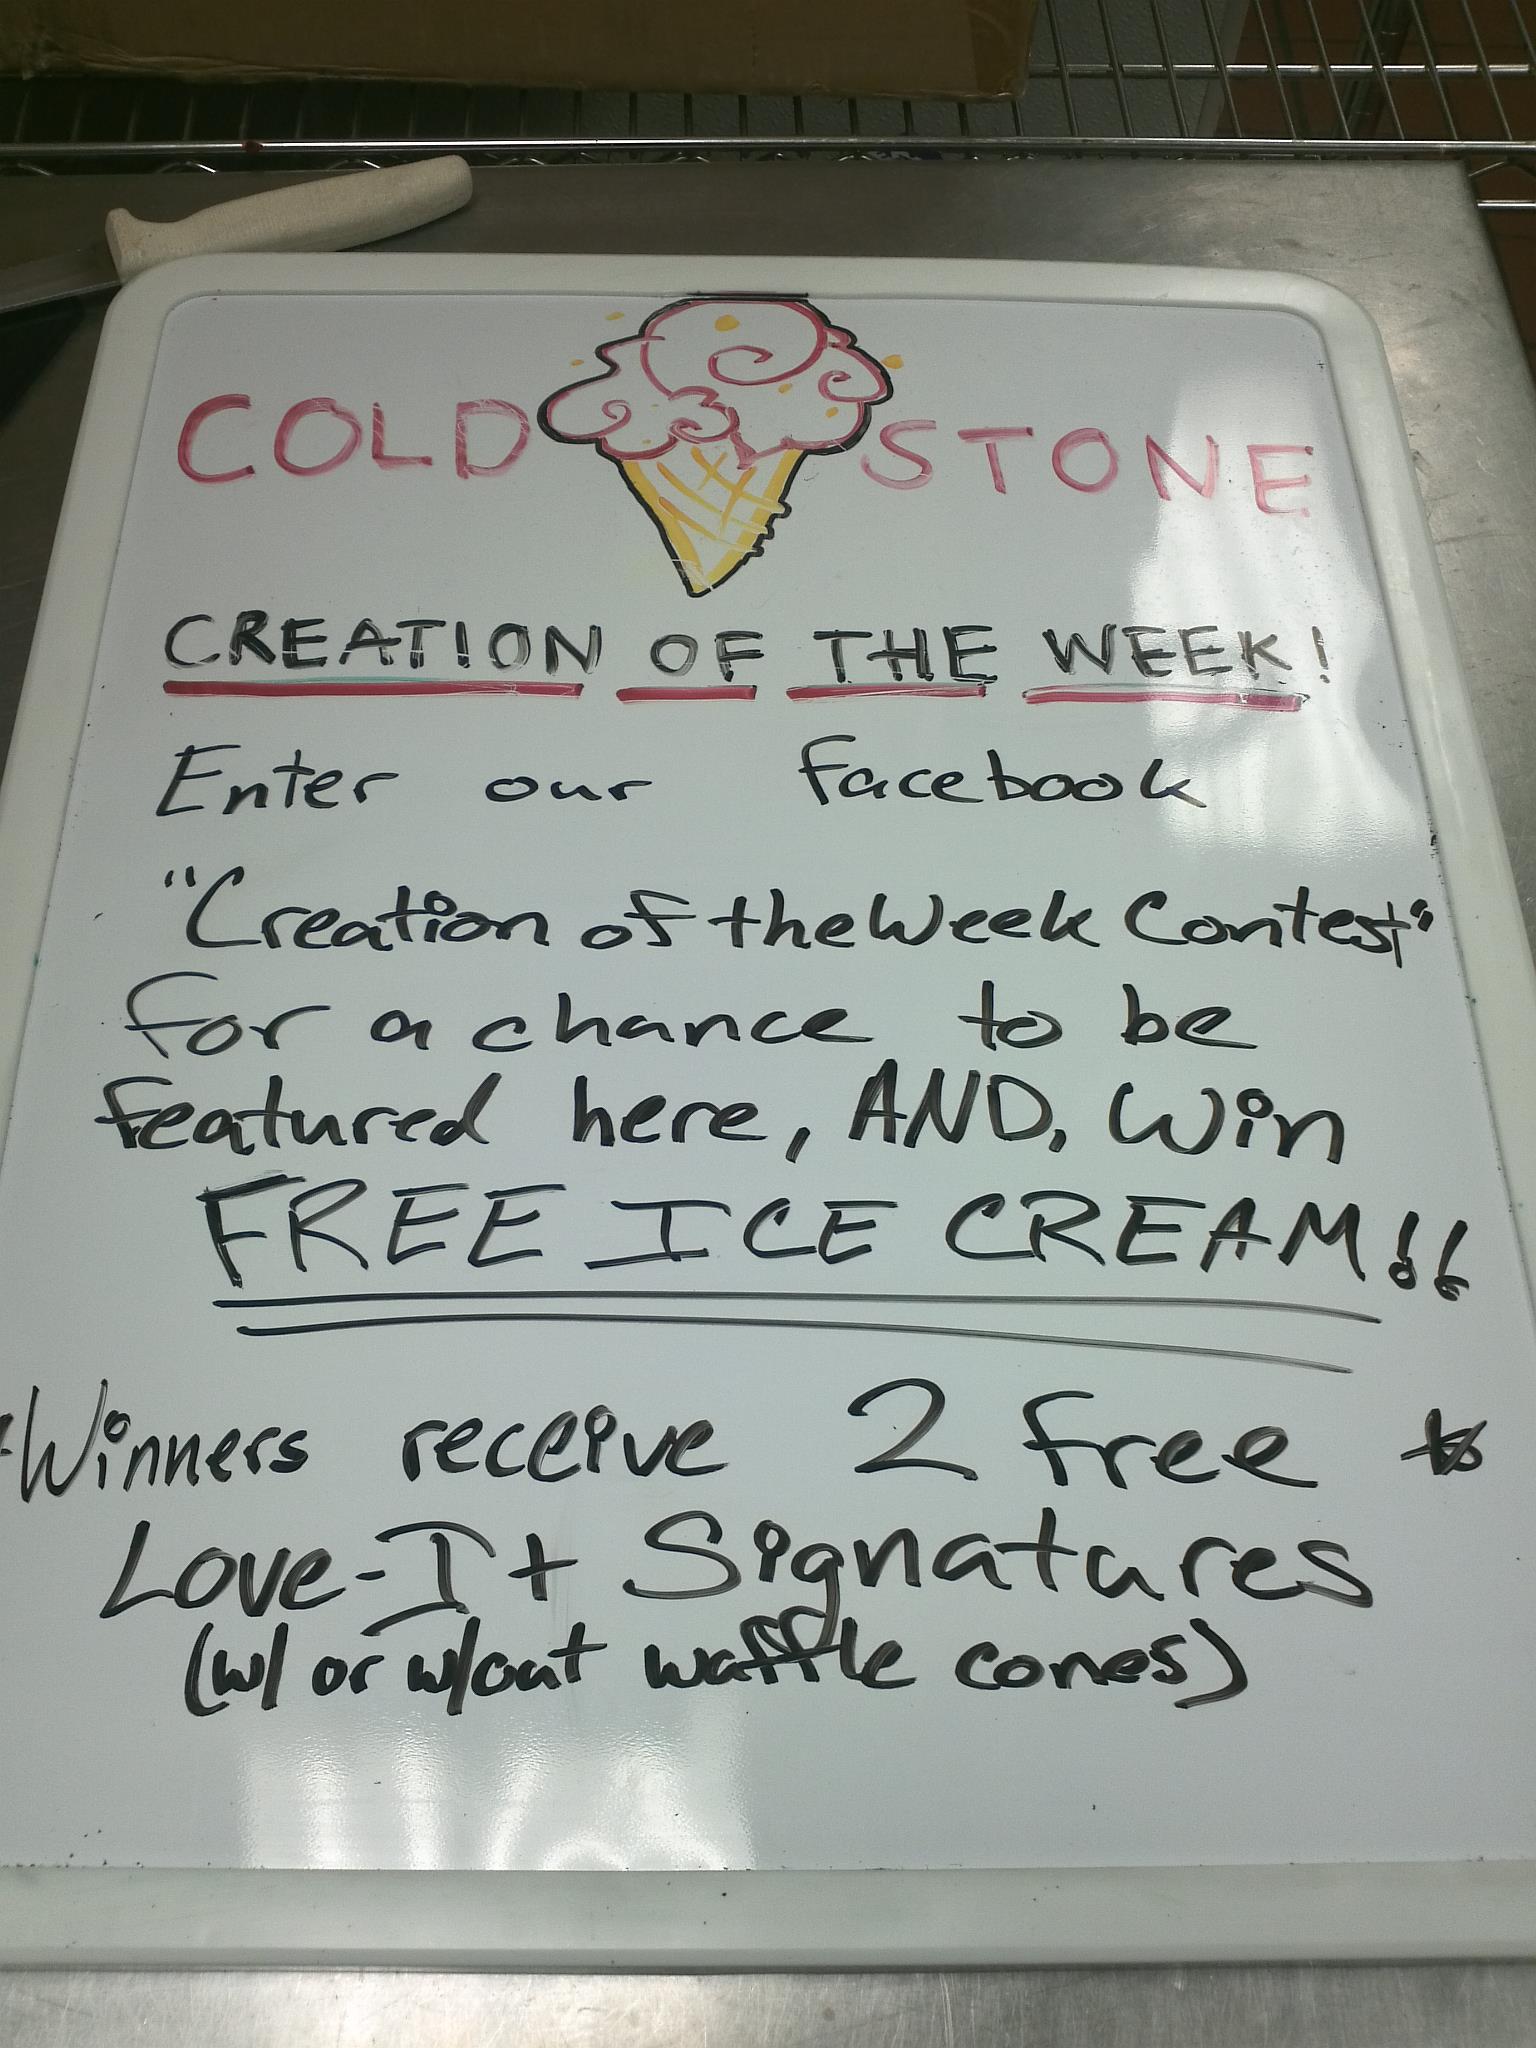 COLD STONE
CREATION OF THE WEEK!
Enter our facebook
"Creation of the Week Contest"
for a chance to be
featured here, AND, Win
FREE ICE CREAM!!
Winners receive 2 free
Love-It Signatures
(w/ or w/out waffle cones)